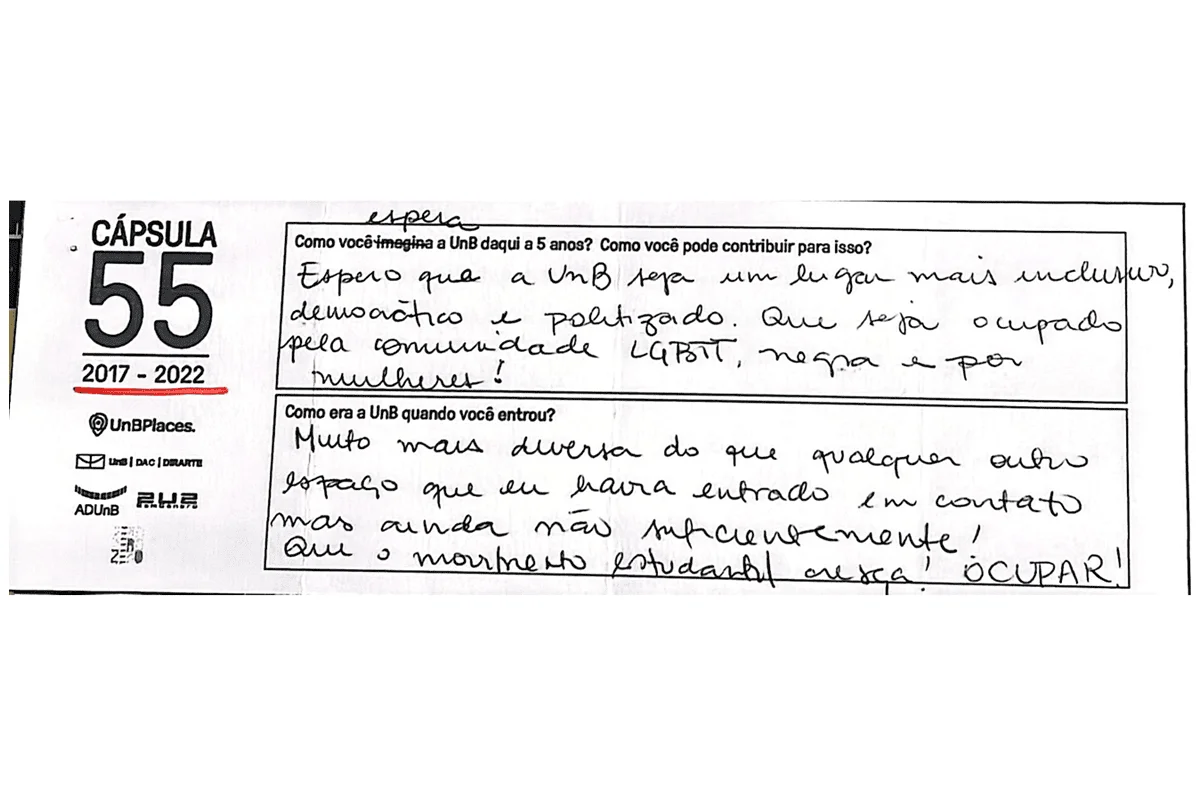 CÁPSULA
55
2017 - 2022
UnBPlaces.
UnB | DAC | DEARTE
ADUnB
espera
Como você imagina a UnB daqui a 5 anos? Como você pode contribuir para isso?
Espero que a UnB seja um lugar mais inclusivo,
democrático e politizado. Que seja ocupado
pela comunidade LGBTT, negra e por
mulheres!
Como era a UnB quando você entrou?
Muito mais diversa do que qualquer outro
espaço que eu havia entrado em contato
mas ainda não suficientemente!
Que o movimento estudantil cresça! OCUPAR!